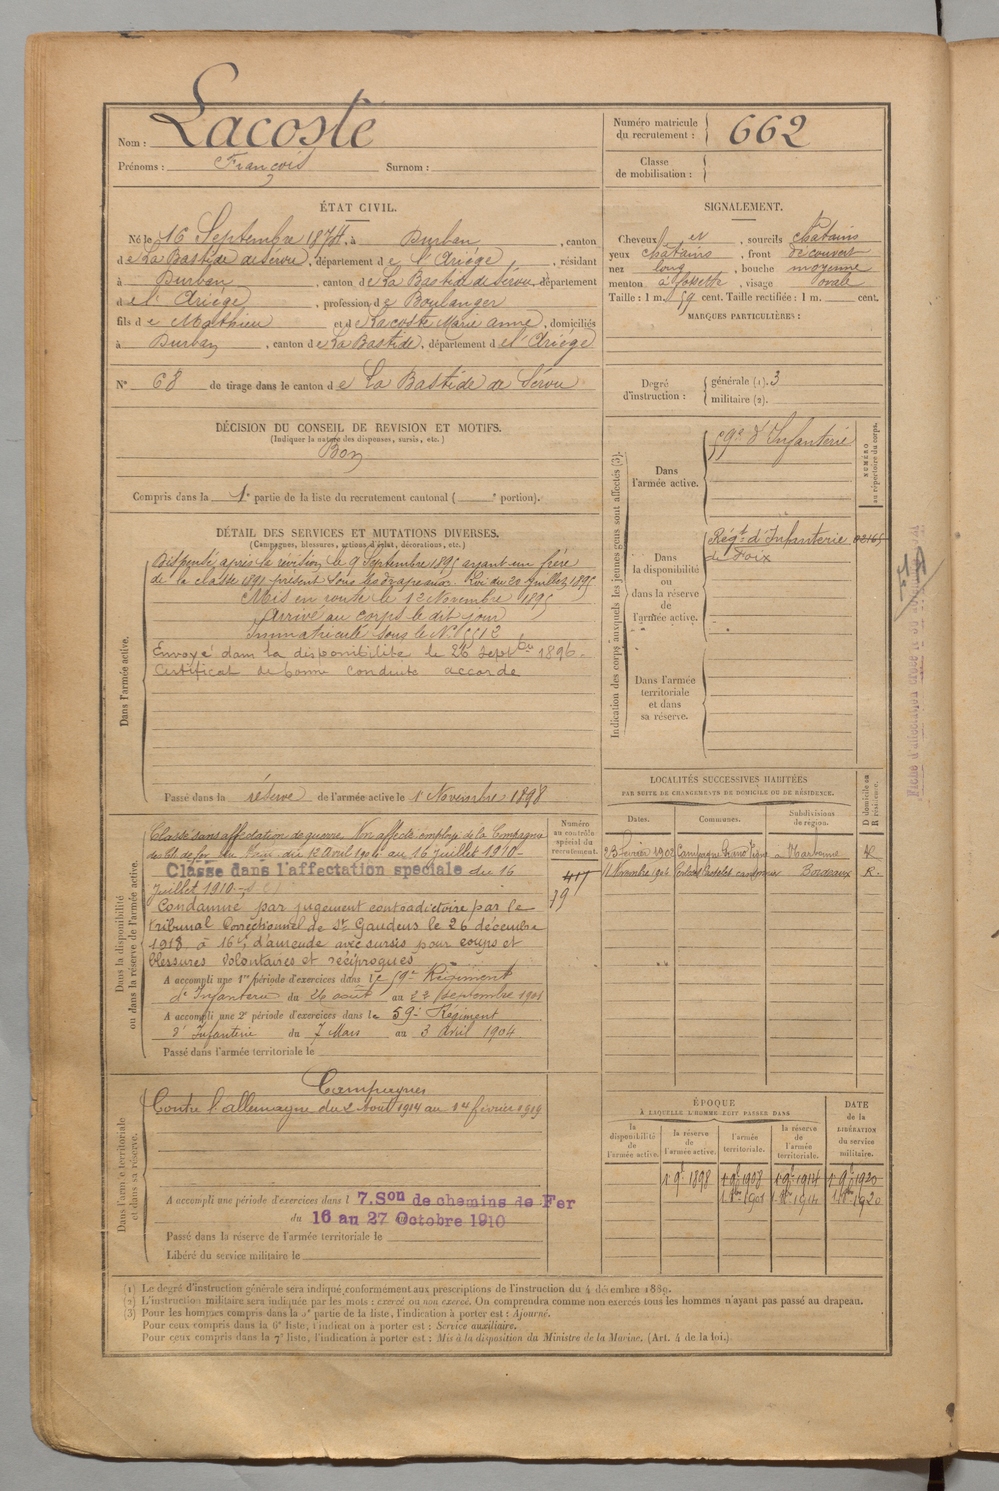 Nom : Lacoste
Prénoms : François Surnom :
Numéro matricule du recrutement : 662
Classe de mobilisation :
ÉTAT CIVIL.
Né le 16 Septembre 1874, à Durban, canton
de La Bastide de Sérou, département de l'Ariège, résidant
à Durban, canton de La Bastide de Sérou, département
de l'Ariège, profession de Boulanger
fils de Mathieu et de Lacoste Marie Anne, domiciliés
à Durban, canton de La Bastide, département de l'Ariège
N° 68 de tirage dans le canton de La Bastide de Sérou
SIGNALEMENT.
Cheveux et, sourcils châtains
yeux châtains, front découvert
nez long, bouche moyenne
menton à fossette, visage ovale
Taille : 1 m. 59 cent. Taille rectifiée : 1 m. cent.
MARQUES PARTICULIÈRES :
Degré d'instruction : générale (1). 3
militaire (2).
DÉCISION DU CONSEIL DE REVISION ET MOTIFS.
(Indiquer la nature des dispenses, sursis, etc.)
Bon
Compris dans la 1e partie de la liste du recrutement cantonal ( e portion).
DÉTAIL DES SERVICES ET MUTATIONS DIVERSES.
(Campagnes, blessures, actions d'éclat, décorations, etc.)
Dans l'armée active.
Dispensé après la révision le 9 Septembre 1895 ayant un frère
de la classe 1891 présent sous les drapeaux. Loi du 20 Juillet 1895
Mis en route le 12 Novembre 1895
Arrivé au corps le dit jour
Immatriculé sous le N°
Envoyé dans la disponibilité le 26 septbre 1896.
Certificat de bonne conduite accordé
Passé dans la réserve de l'armée active le 1 Novembre 1898
Indication des corps auxquels les jeunes gens sont affectés (3).
Dans l'armée active.
59e d'Infanterie
NUMÉRO au répertoire du corps.
Dans la disponibilité ou dans la réserve de l'armée active.
Régt d'Infanterie de Foix
Dans l'armée territoriale et dans sa réserve.
LOCALITÉS SUCCESSIVES HABITÉES
PAR SUITE DE CHANGEMENTS DE DOMICILE OU DE RÉSIDENCE.
Dates. Communes. Subdivisions de région. D domicile ou R résidence.
23 Février 1902 Narbonne R
11 Novembre 1904 Bordeaux R.
Dans la disponibilité ou dans la réserve de l'armée active.
Numéro au contrôle spécial du recrutement.
417
79
Classé sans affectation de guerre. Non affecté employé de la Compagnie
des Ch. de fer du Midi du 12 Avril 1904 au 16 Juillet 1910-
Classé dans l'affectation spéciale du 16
Juillet 1910-
Condamné par jugement contradictoire par le
tribunal Correctionnel de St Gaudens le 26 décembre
1918 à 16f d'amende avec sursis pour coups et
blessures volontaires et réciproques
A accompli une 1re période d'exercices dans le 59e Régiment
d'Infanterie du 26 août au 22 septembre 1901
A accompli une 2e période d'exercices dans le 59e Régiment
d'Infanterie du 7 Mars au 3 Avril 1904
Passé dans l'armée territoriale le
Dans l'armée territoriale et dans sa réserve.
Campagnes
Contre l'allemagne du 2 Août 1914 au 1er février 1919
A accompli une période d'exercices dans l 7.Son de chemins de Fer
du 16 au 27 Octobre 1910
Passé dans la réserve de l'armée territoriale le
Libéré du service militaire le
ÉPOQUE
À LAQUELLE L'HOMME DOIT PASSER DANS
la disponibilité de l'armée active. la réserve de l'armée active. l'armée territoriale. la réserve de l'armée territoriale.
DATE de la LIBÉRATION du service militaire.
1 9bre 1898 1 9bre 1908 1 9bre 1914 1 9bre 1920
1 Nbre 1901 1 Nbre 1914 1 Nbre 1920
(1) Le degré d'instruction générale sera indiqué conformément aux prescriptions de l'instruction du 4 décembre 1889.
(2) L'instruction militaire sera indiquée par les mots : exercé ou non exercé. On comprendra comme non exercés tous les hommes n'ayant pas passé au drapeau.
(3) Pour les hommes compris dans la 5e partie de la liste, l'indication à porter est : Ajourné.
Pour ceux compris dans la 6e liste, l'indication à porter est : Service auxiliaire.
Pour ceux compris dans la 7e liste, l'indication à porter est : Mis à la disposition du Ministre de la Marine. (Art. 4 de la loi.)